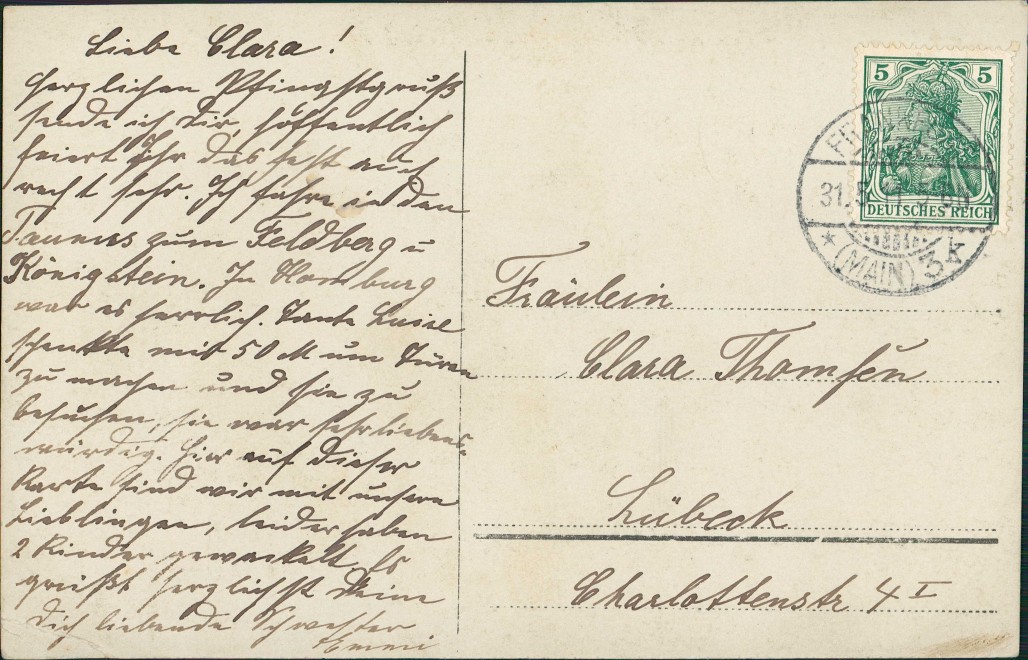 Liebe Clara!
Herzlichen Pfingstgruß
sende ich Dir, hoffentlich
feiert Ihr das Fest auch
recht sehr. Ich fahre in den
Taunus zum Feldberg u
Königstein. In Homburg
war es herrlich. Tante Luise
schenkte mir 50 M um Turen
zu machen und sie zu
besuchen, sie war sehr liebens-
würdig. Hier auf dieser
Karte sind wir mit unsern
Lieblingen, leider haben
2 Kinder gewackelt. Es
grüßt herzlichst Deine
Dich liebende Schwester
Emmi
5 5
DEUTSCHES REICH
31.5.
(MAIN) 3 K
Fräulein
Clara Thomsen
Lübeck
Charlottenstr 4 I